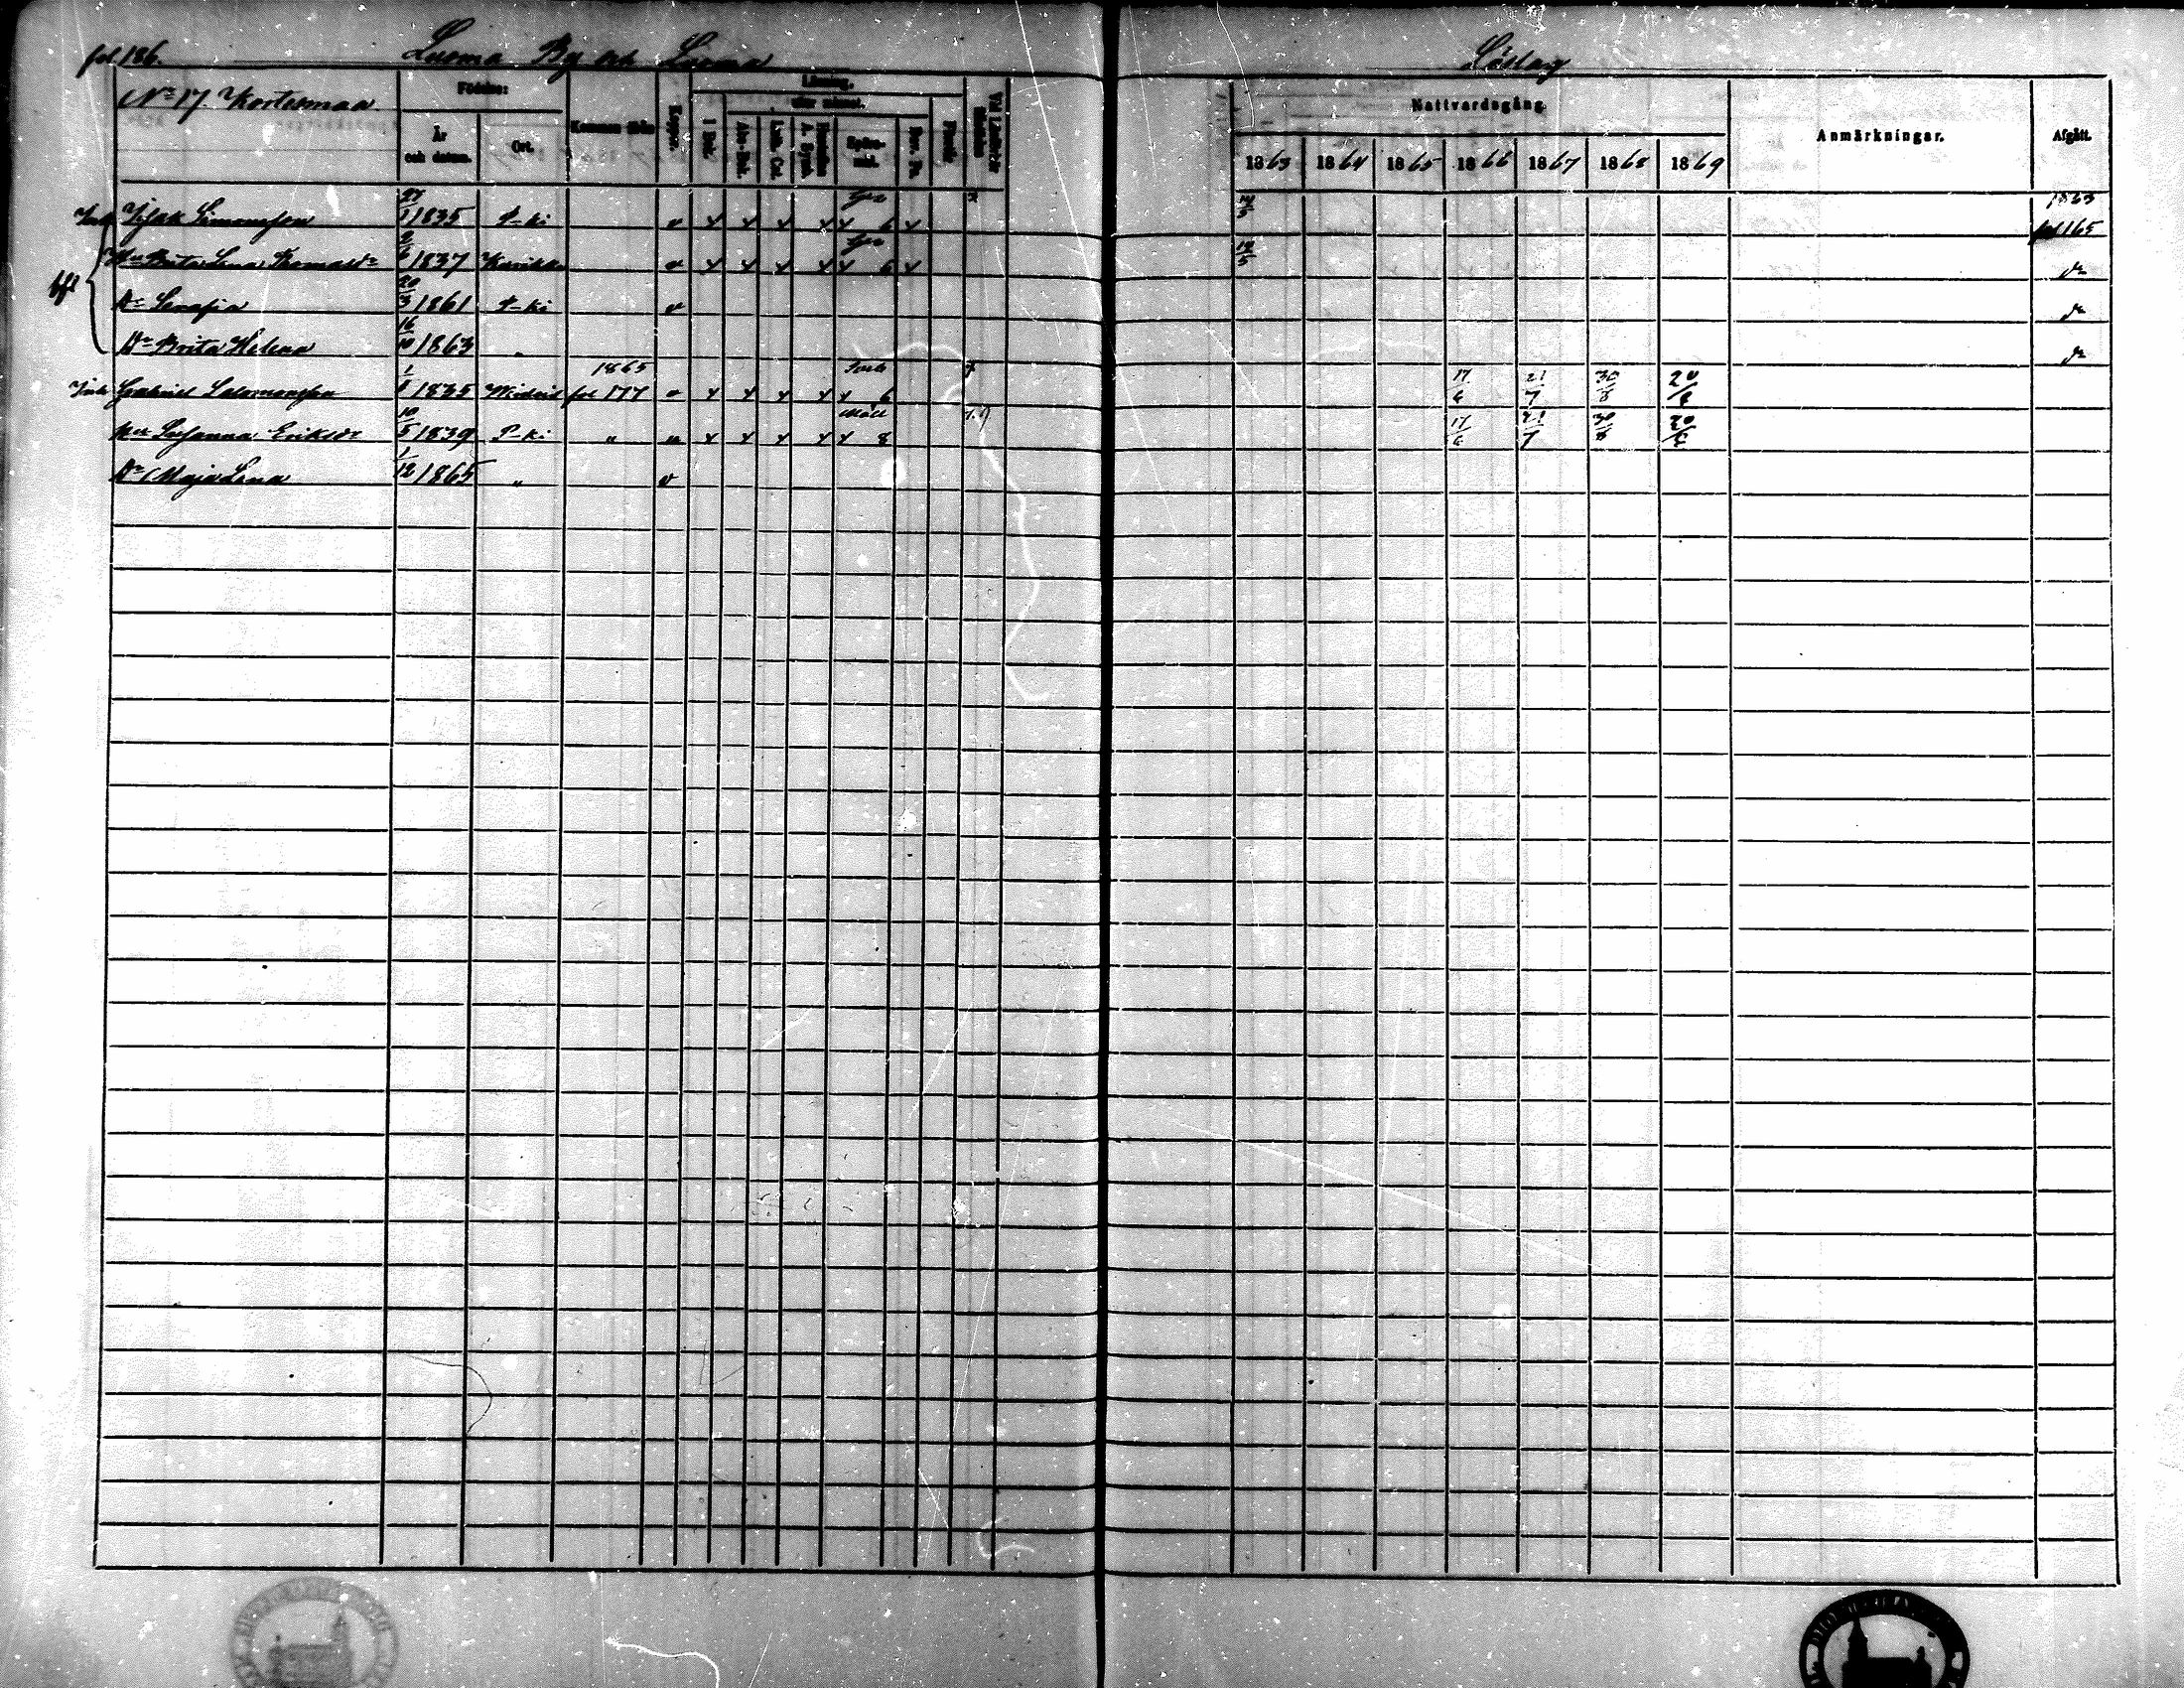 fol. 186. Luoma By och Luoma Löslag
No 17 Kortesmaa
Födelse:
År och datum.
Ort.
Kommen ifrån
Koppor.
Läsning.
I Bok.
utur minnet.
Abc-Bok.
Luth. Cat.
A. Symb.
Spörsmål.
Dav. Ps.
Förstår
Vid Läseförhör
Nattvardsgång
1863 1864 1865 1866 1867 1868 1869
Anmärkningar.
Afgått.
Inh Isak Simonsson 27/1 1835 P-ki v x x x x x 6 x 14/5 1863 fol 165
Hu Brita Lena Thomasdr 2/6 1837 v x x x x x 6 x 14/5 dr
Dr Serafia 20/3 1861 P-ki v dr
Dr Brita Helena 16/10 1863 " dr
Inh Gabriel Salomonsson 1/8 1835 1865 fol 177 v x x x x x 6 17/6 21/7 30/8 20/6
Hu Susanna Eriksdr 10/5 1839 P-ki " " x x x x x 8 17/6 21/7 30/8 20/6
Dr Maja Lena 1/12 1865 " v